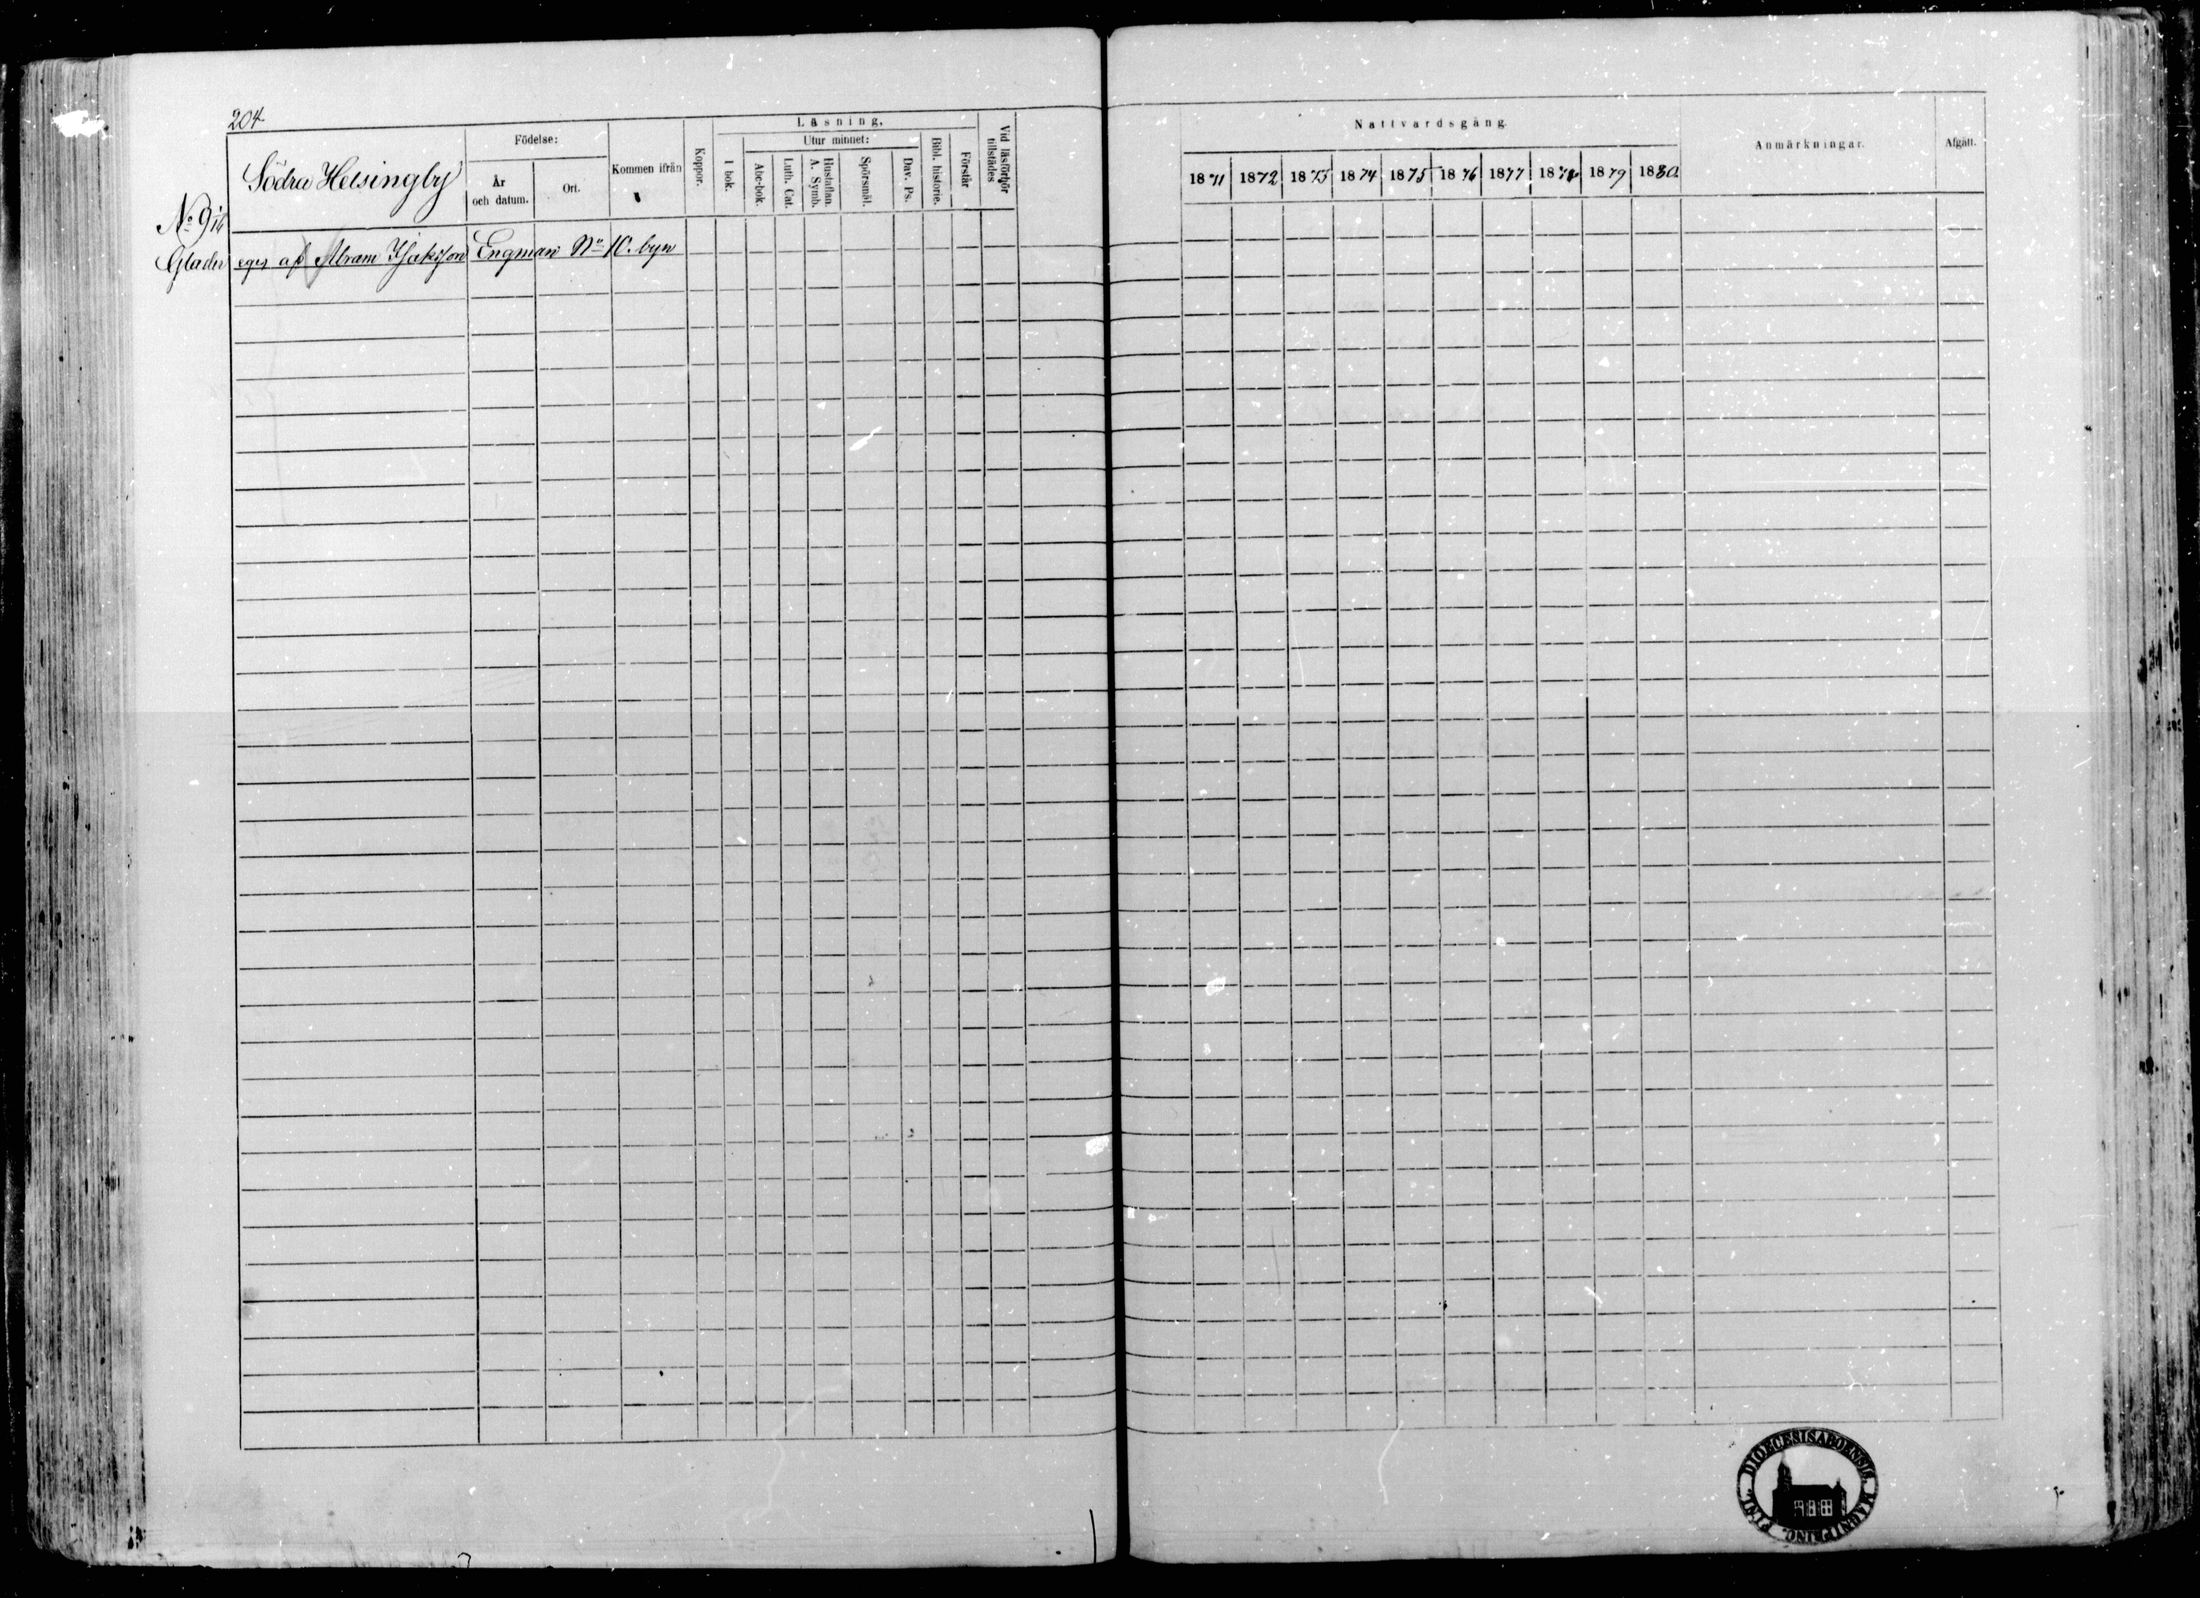 204
Södra Helsingby
Födelse:
År och datum.
Ort.
Kommen ifrån
Koppor.
Läsning,
I bok.
Utur minnet:
Abc-bok.
Luth. Cat.
Hustaflan. A. Symb.
Spörsmål.
Dav. Ps.
Bibl. historie.
Förstår
Vid läsförhör tillstädes
Nattvardsgång.
1871 1872 1873 1874 1875 1876 1877 1878 1879 1880
Anmärkningar.
Afgått.
No 9
Glader eges af Abram Isaksson Engman No 10. byn
DIOECESIS ABOENSIS. MAGNI PRINC. FINL.